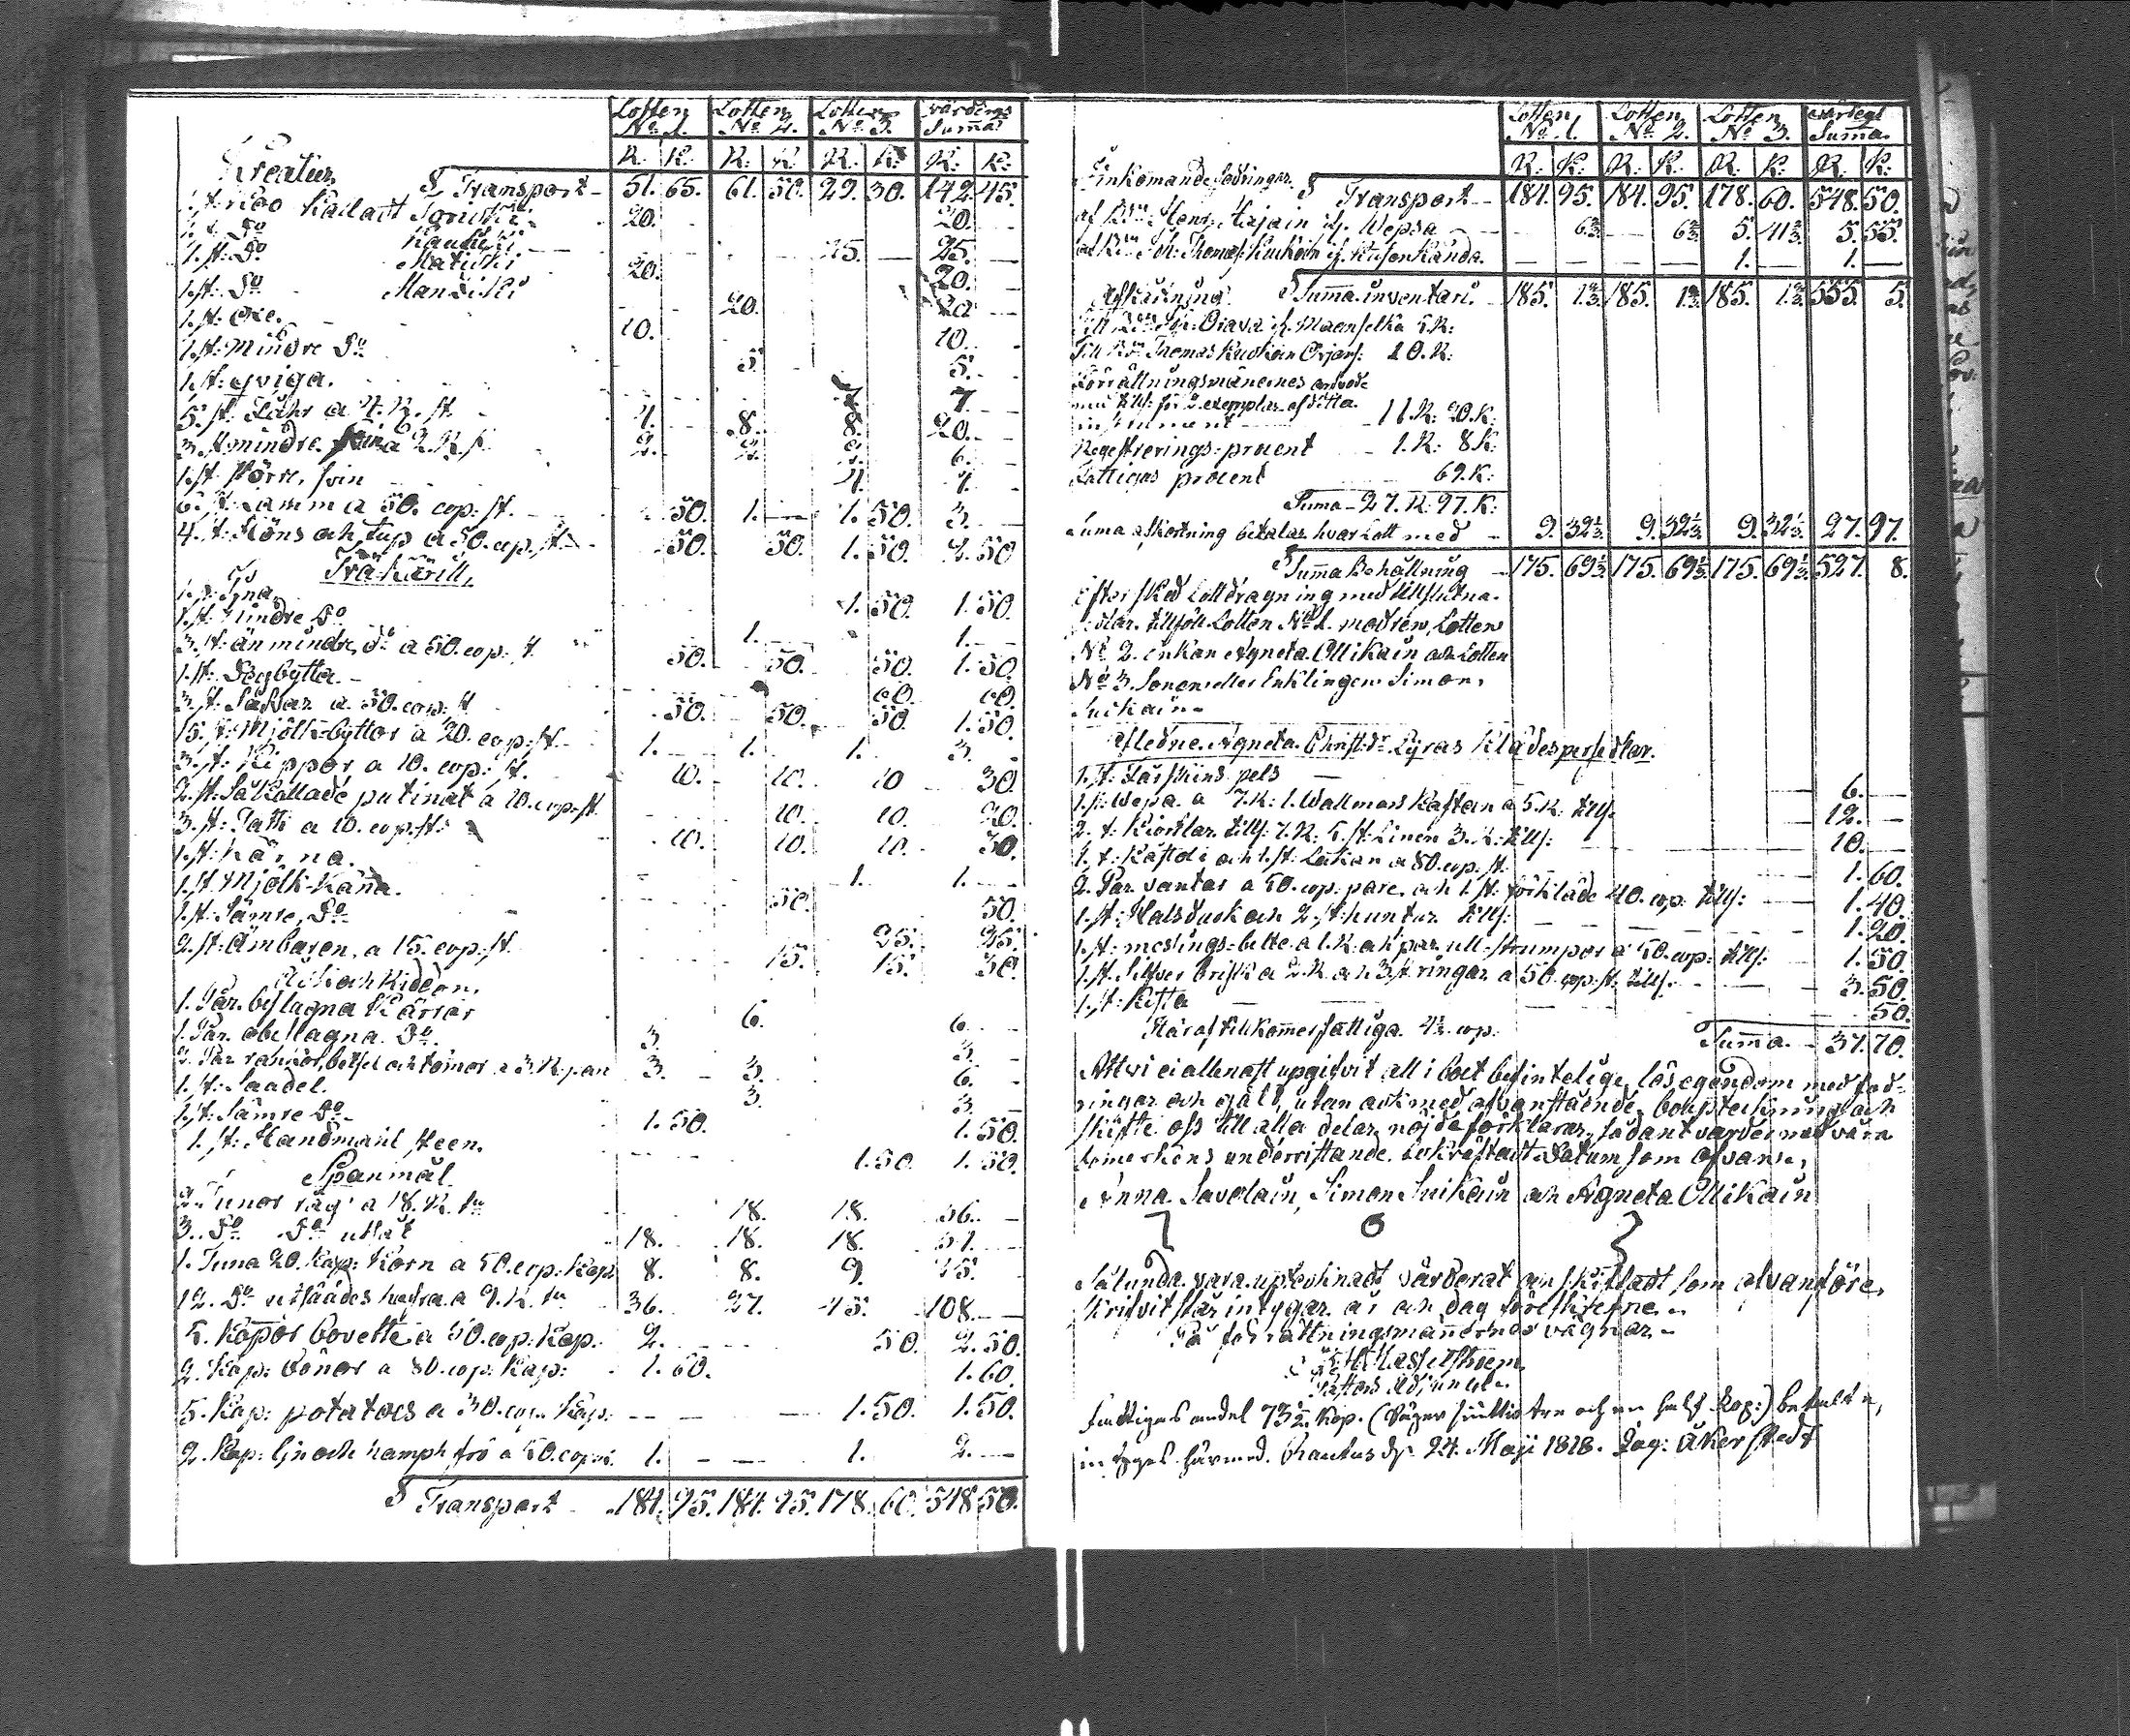 Lotten Lotten Lotten Värderings
No 1. No 2. No 3. Summa
R. K. R. K. R. K. R. K.
Kreatur
S Transport 51. 65. 61. 50. 29. 30. 142. 45.
1. st: Koo kallad 20. 20.
1. st: Do 25. 25.
1. st: Do Matiki 20. 20.
1. st: Do Mansiki 20. 20
1. st: Oxe. 10. 10.
1. st: Mindre Do 5. 5.
1. st: qviga. 7. 7.
5. st: Fåhr a 4. R. st. 4. 8. 8. 20.
3. st mindre svin a 2. R. st 2. 2. 2. 6.
1. st större svin 4. 4.
6. st: Lamm a 50. cop: st. 50. 1. 1. 50. 3.
4. st: Höns och tup a 50. cop. st. 50. 50. 1. 50. 2. 50
Träkärill.
1. st: Tyna. 1. 50. 1. 50.
1. st: Mindre Do 1. 1.
3. st: än mindre do a 50. cop: st 50. 50. 50. 1. 50.
1. st: Degbytta. 60. 60.
3. st: Såhar a 50. cop: st 50. 50. 50. 1. 50.
15. st: Mjölk-byttor a 20. cop: st. 1. 1. 1. 3.
3. st: Kippor a 10. cop: st. 10. 10. 10 30.
2. st: Så kallade putinat a 10. cop: st 10. 10. 20.
3. st: Patti a 10. cop. st: 10. 10. 10. 30.
1. st: Kärna. 1. 1.
1. st Mjölk-kanna. 50. 50.
1. st: Sämre Do 25. 25.
2. st: Ämbaren a 15. cop: st. 15. 15. 30.
Åk och Riddon.
1. Par. beslagna Kärror 6. 6.
1. Par. obeslagna Do. 3. 3.
2. Par rankor, betsel och tömor a 3. R. par 3. 3. 6.
1. st: Saadel. 3. 3.
1. st: Sämre Do 1. 50. 1. 50.
1. st: Handqvarn steen. 1. 50. 1. 50.
Spanmål.
2. Tunor råg a 18. R. tn 18. 18. 36.
3. Do Do utsåt 18. 18. 18. 54.
1. Tuna 20. Kap: Korn a 50. cop: Kap 8. 8. 9. 25.
12. Do utsåades hafra a 9. R. tn 36. 27. 45. 108.
5. Kapor bovette a 50. cop: Kap. 2. 50. 2. 50.
2. Kap: bönor a 80. cop: Kap: 1. 60. 1. 60.
5. Kap: potatoes a 30. cop. Kap: 1. 50. 1. 50.
2. Kap: lin och hamp frö a 50. cop: 1. 1. 2.
S Transport 184. 95. 184. 95. 178. 60. 548 50.
Lotten Lotten Lotten Värdegs
No 1. No 2. No 3. Summa.
R. K. R. K. R. K. R. K.
Inkomande fodringar.
S Transport 184. 95. 184. 95. 178. 60. 548. 50.
af Bdn Henr. i Wepsa 6 2/3 6 2/3 5. 41 2/3 5. 55.
af Bdn Thomas Kuckoin if. 1. 1.
Afkårtning. S Summa inventari. 185. 1 2/3 185. 1 2/3 185. 1 2/3 555. 5.
Till Bdn Orava if. Maanselkä 5. R:
Till Bdn Thomas Kuckoin 10. R:
Förrättningsmänernes arvode
med tills: för 2. exemplar af detta
instrument 11. R: 20. K:
Regestrerings: procent 1. R: 8 K:
Fattigas procent 69. K:
Summa 27. R: 97. K:
Suma afkortning betalar hvar Lott med 9. 32 1/3 9. 32 1/3 9. 32 1/3 27. 97.
S Summa Behållning 175. 69 1/3 175. 69 1/3 175. 69 1/3 527. 8.
Efter sked Lottdragning med
tillföll Lotten No 1. modren, Lotten
No 2. enkan Agneta Ollikain och Lotten
No 3. Sonen eller Enklingen Simon
Suikain
Afledne Agneta Christ:dr Lyras Klädespersedlar.
1. st: Fårskins pels 6.
1. st: Wepa a 7. R: 1. Wallmars Kaftan a 5. R. tills. 12.
2. st: Kiortlar tills: 7. R. 5. st: Linen 3. R: tills: 10.
1. st: och 1. st: Lakan a 80. cop. st. 1. 60.
2. Par vantar a 50. cop: pare, och 1. st: förkläde 40. cop: tills: 1. 40.
1. st: Halsduk och 2. st: huntur tills: 1. 20.
1. st: messings-belte a 1. R. och 1 par ull-strumpor a 50. cop: tills: 1. 50.
1. st Silfver brisk a 2. R. och 3. st ringar a 50. cop. st: tills. 3. 50.
1. st: Kista 50.
Häraf tillkommer fattiga. cop: Summa 37. 70.
Att vi ei allenast upgifvit all i boet befintelige lösegendom med fod-
ringar och gäld, utan ock med ofvanstående bouptekning och
skifte oss till alla delar nöjda förklarar, sådant varder med våra
bomerkens underristande bekräftadt. Datum som ofvan.
Anna Savolain, Simon Suikain och Agneta Ollikain
Sålunda vara uptecknadt värderat och skiftadt som ofvanföre
skrifvit står intygar år och dag föreskrefne.
På förrättningsmännernes vägnar
Hasselstroem
Pastors Adjunct.
Fattigas andel 73 1/2 Kop. (Säger siuttiotre och en half Kop:) betalt
intygas härmed. Rautus d. 24. Maji 1818. Jag: Åkerstedt